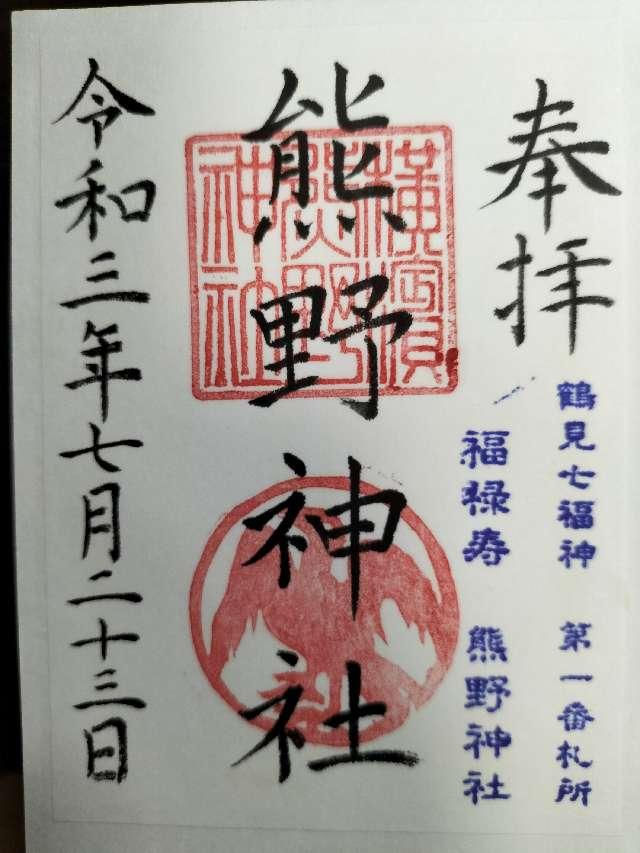 奉拝
鶴見七福神 第一番札所
福禄寿 熊野神社
熊野神社
横濱
熊野
神社
令和三年七月二十三日